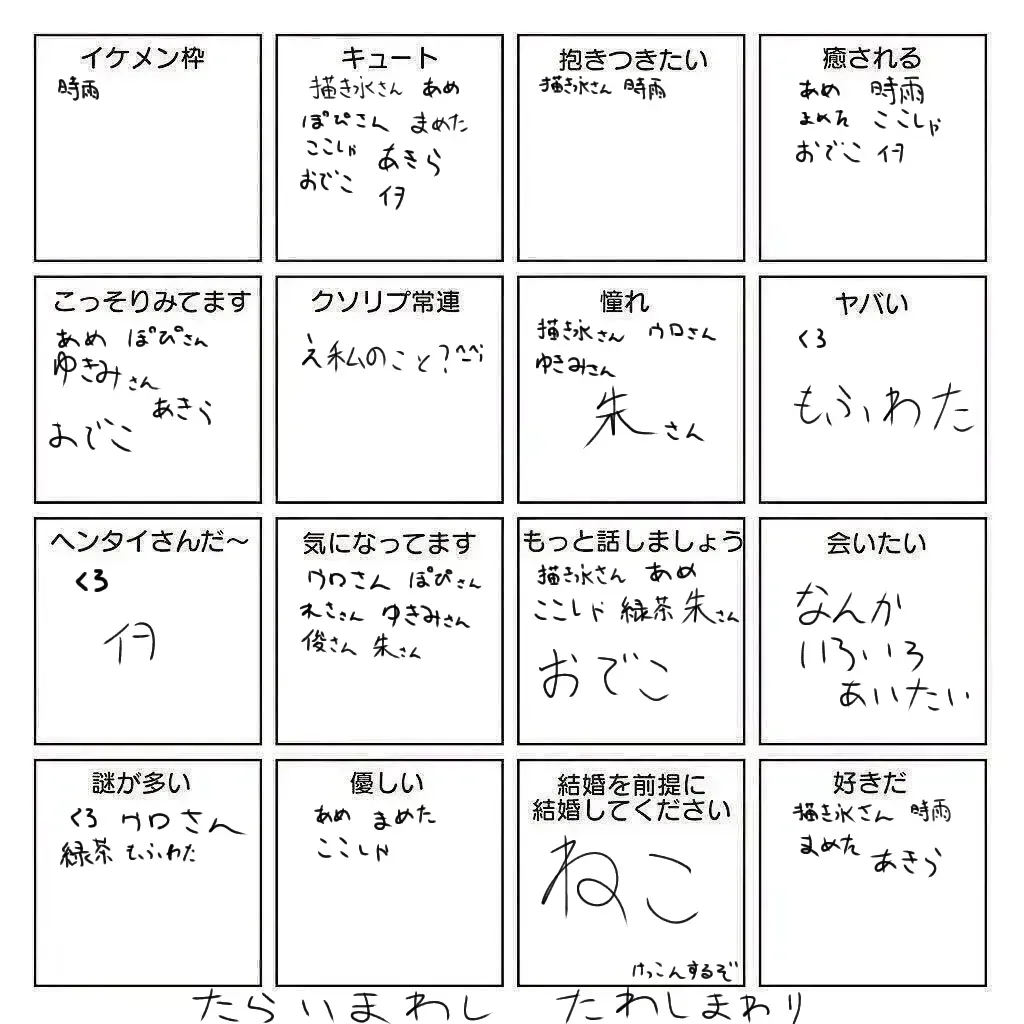 イケメン枠
時雨
キュート
描き氷さん あめ
ぽぴさん まめた
ここしゃ あきら
おでこ イヲ
抱きつきたい
描き氷さん 時雨
癒される
あめ 時雨
まめた ここしゃ
おでこ イヲ
こっそりみてます
あめ ぽぴさん
ゆきみさん
あきら
おでこ
クソリプ常連
え私のこと?^^;
憧れ
描き氷さん ウロさん
ゆきみさん
朱さん
ヤバい
くろ
もふわた
ヘンタイさんだ～
くろ
イヲ
気になってます
ウロさん ぽぴさん
ゆきみさん
俊さん 朱さん
もっと話しましょう
描き氷さん あめ
ここしゃ 緑茶 朱さん
おでこ
会いたい
なんか
いろいろ
あいたい
謎が多い
くろ ウロさん
緑茶 もふわた
優しい
あめ まめた
ここしゃ
結婚を前提に
結婚してください
ねこ
けっこんするぞ
好きだ
描き氷さん 時雨
まめた あきら
たらいまわし たわしまわり